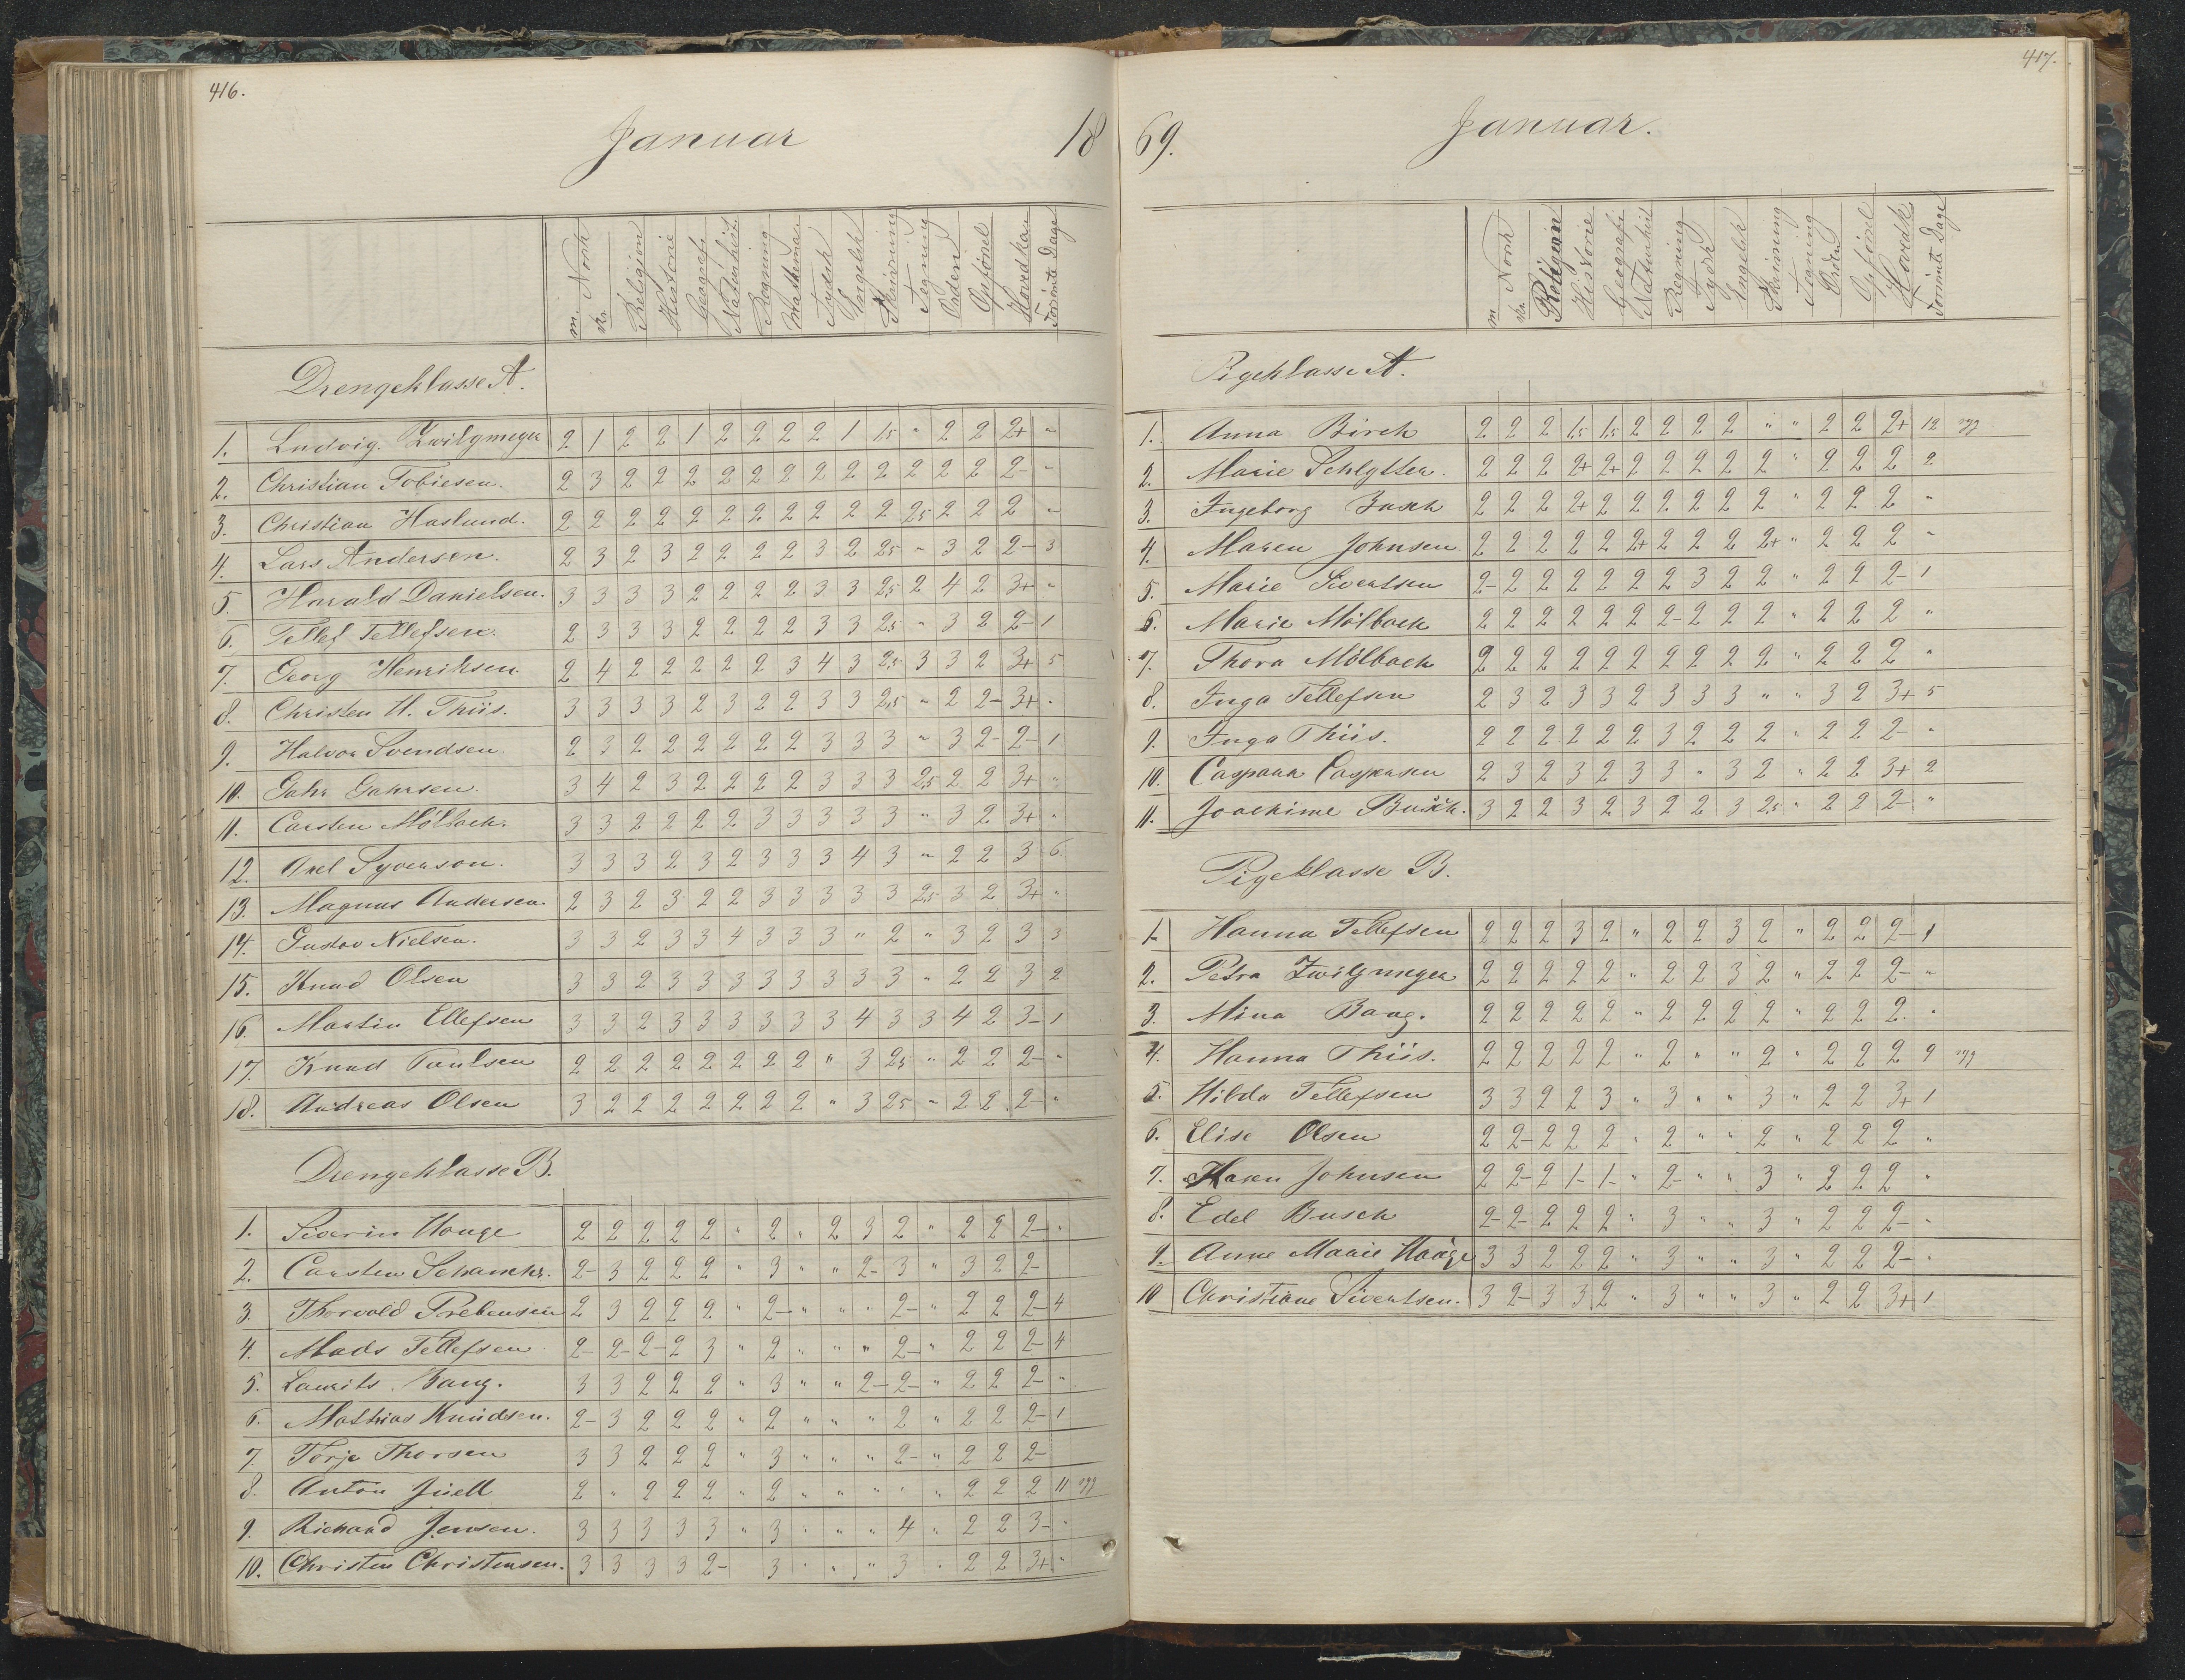 416.
Januar 18
m. Norsk
sk.
Religion
Historie
Geografi
Naturhist.
Regning
Mathema.
Tydsk
Engelsk
Skrivning
Tegning
Orden
Opførsel
Hovedkar.
Forsømte Dage
Drengeklasse A.
1. Ludvig. Zwilgmeyer 2 1 2 2 1 2 2 2 2 1 1,5 " 2 2 2+ "
2. Christian Tobiesen. 2 3 2 2 2 2 2 2 2 2 2 2 2 2 2- "
3. Christian Haslund. 2 2 2 2 2 2 2 2 2 2 2 2,5 2 2 2 "
4. Lars Andersen. 2 3 2 3 2 2 2 2 3 2 2,5 " 3 2 2- 3
5. Harald Danielsen. 3 3 3 3 2 2 2 2 3 3 2,5 2 4 2 3+ "
6. Tellef Tellefsen. 2 3 3 3 2 2 2 2 3 3 2,5 " 3 2 2- 1
7. Georg Henriksen. 2 4 2 2 2 2 2 3 4 3 2,5 3 3 2 3+ 5
8. Christen H. Thiis. 3 3 3 3 2 3 2 2 3 3 2,5 " 2 2- 3+ "
9. Halvor Svendsen. 2 3 2 2 2 2 2 2 3 3 3 " 3 2- 2- 1
10. Gahr Gahrsen. 3 4 2 3 2 2 2 2 3 3 3 2,5 2 2 3+ "
11. Carsten Mölbach. 3 3 2 2 2 2 3 3 3 3 3 " 3 2 3+ "
12. Axel Syverson. 3 3 3 2 3 2 3 3 3 4 3 " 2 2 3 6
13. Magnus Andersen. 2 3 2 3 2 2 3 3 3 3 3 2,5 3 2 3+ "
14. Gustav Nielsen. 3 3 2 3 3 4 3 3 3 " 2 " 3 2 3 3
15. Knud Olsen 3 3 2 3 3 3 3 3 3 3 3 " 2 2 3 2
16 Martin Ellefsen 3 3 2 3 3 3 3 3 3 4 3 3 4 2 3- 1
17. Knud Paulsen 2 2 2 2 2 2 2 2 " 3 2,5 " 2 2 2- "
18. Andreas Olsen 3 2 2 2 2 2 2 2 " 3 2,5 " 2 2 2- "
Drengeklasse B.
1. Siverin Houge 2 2 2 2 2 " 2 " 2 3 2 " 2 2 2- "
2. Carsten 2- 3 2 2 2 " 3 " " 2- 3 " 3 2 2-
3. Thorvald Prebensen 2 3 2 2 2 " 2- " " " 2- " 2 2 2- 4
4. Mads Tellefsen 2- 2- 2- 2 3 " 2 " " " 2- " 2 2 2- 4
5. Laurits. Bang. 3 3 2 2 2 " 3 " " 2- 2- " 2 2 2- "
6. Mathias Knudsen. 2- 3 2 2 2 " 2 " " " 2 " 2 2 2- 1
7. Torje Thorsen 3 3 2 2 2 " 3 " " " 2- " 2 2 2-
8. Anton Juell 2 " 2 2 2 " 2 " " " " " 2 2 2 11 syg
9. Richard Jensen. 3 3 3 3 3 " 3 " " " 4 " 2 2 3- "
10. Christen Christensen. 3 3 3 3 2- 3 " " " 3 " 2 2 3+ "
417.
69. Januar.
m Norsk
sk.
Religion
Historie
Geografi
Naturhist
Regning
Tydsk
Engelsk
Skrivning
Tegning
Orden
Opførsel
Hovedk.
Forsømte Dage
Pigeklasse A.
1. Anna Birch 2 2 2 1,5 1,5 2 2 2 2 " " 2 2 2+ 12 syg
2. Marie Schlytter. 2 2 2 2+ 2+ 2 2 2 2 2 " 2 2 2 2
3. Ingeborg Busch 2 2 2 2+ 2 2 2 2 2 2 " 2 2 2 "
4. Maren Johnsen 2 2 2 2 2 2+ 2 2 2 2+ " 2 2 2 "
5. Marie Sivertsen 2- 2 2 2 2 2 2 3 2 2 " 2 2 2- 1
6. Marie Mölback 2 2 2 2 2 2 2- 2 2 2 " 2 2 2 "
7. Thora Mölback 2 2 2 2 2 2 2 2 2 2 " 2 2 2 "
8. Inga Tellefsen 2 3 2 3 3 2 3 3 3 " " 3 2 3+ 5
9. Inga Thiis. 2 2 2 2 2 2 3 2 2 2 " 2 2 2- "
10. Caspara Caspersen 2 3 2 3 2 3 3 " 3 2 " 2 2 3+ 2
11. Joachime Busch. 3 2 2 3 2 3 2 2 3 2,5 " 2 2 2- "
Pigeklasse B.
1. Hanna Tellefsen 2 2 2 3 2 " 2 2 3 2 " 2 2 2- 1
2. Petra Zwilgmeyer 2 2 2 2 2 " 2 2 3 2 " 2 2 2- "
3. Mina Bang. 2 2 2 2 2 " 2 2 2 2 " 2 2 2. "
4. Hanna Thiis. 2 2 2 2 2 " 2 " " 2 " 2 2 2 9 syg
5. Hilda Tellefsen 3 3 2 2 3 " 3 " " 3 " 2 2 3+ 1
6. Elise Olsen 2 2- 2 2 2 " 2 " " 2 " 2 2 2 "
7. Karen Johnsen 2 2- 2 1- 1- " 2- " " 3 " 2 2 2 "
8. Edel Busch 2- 2- 2 2 2 " 3 " " 3 " 2 2 2- "
9. Anne Marie Houge 3 3 2 2 2 " 3 " " 3 " 2 2 2- "
10 Christiane Sivertsen. 3 2- 3 3 2 " 3 " " 3 " 2 2 3+ 1